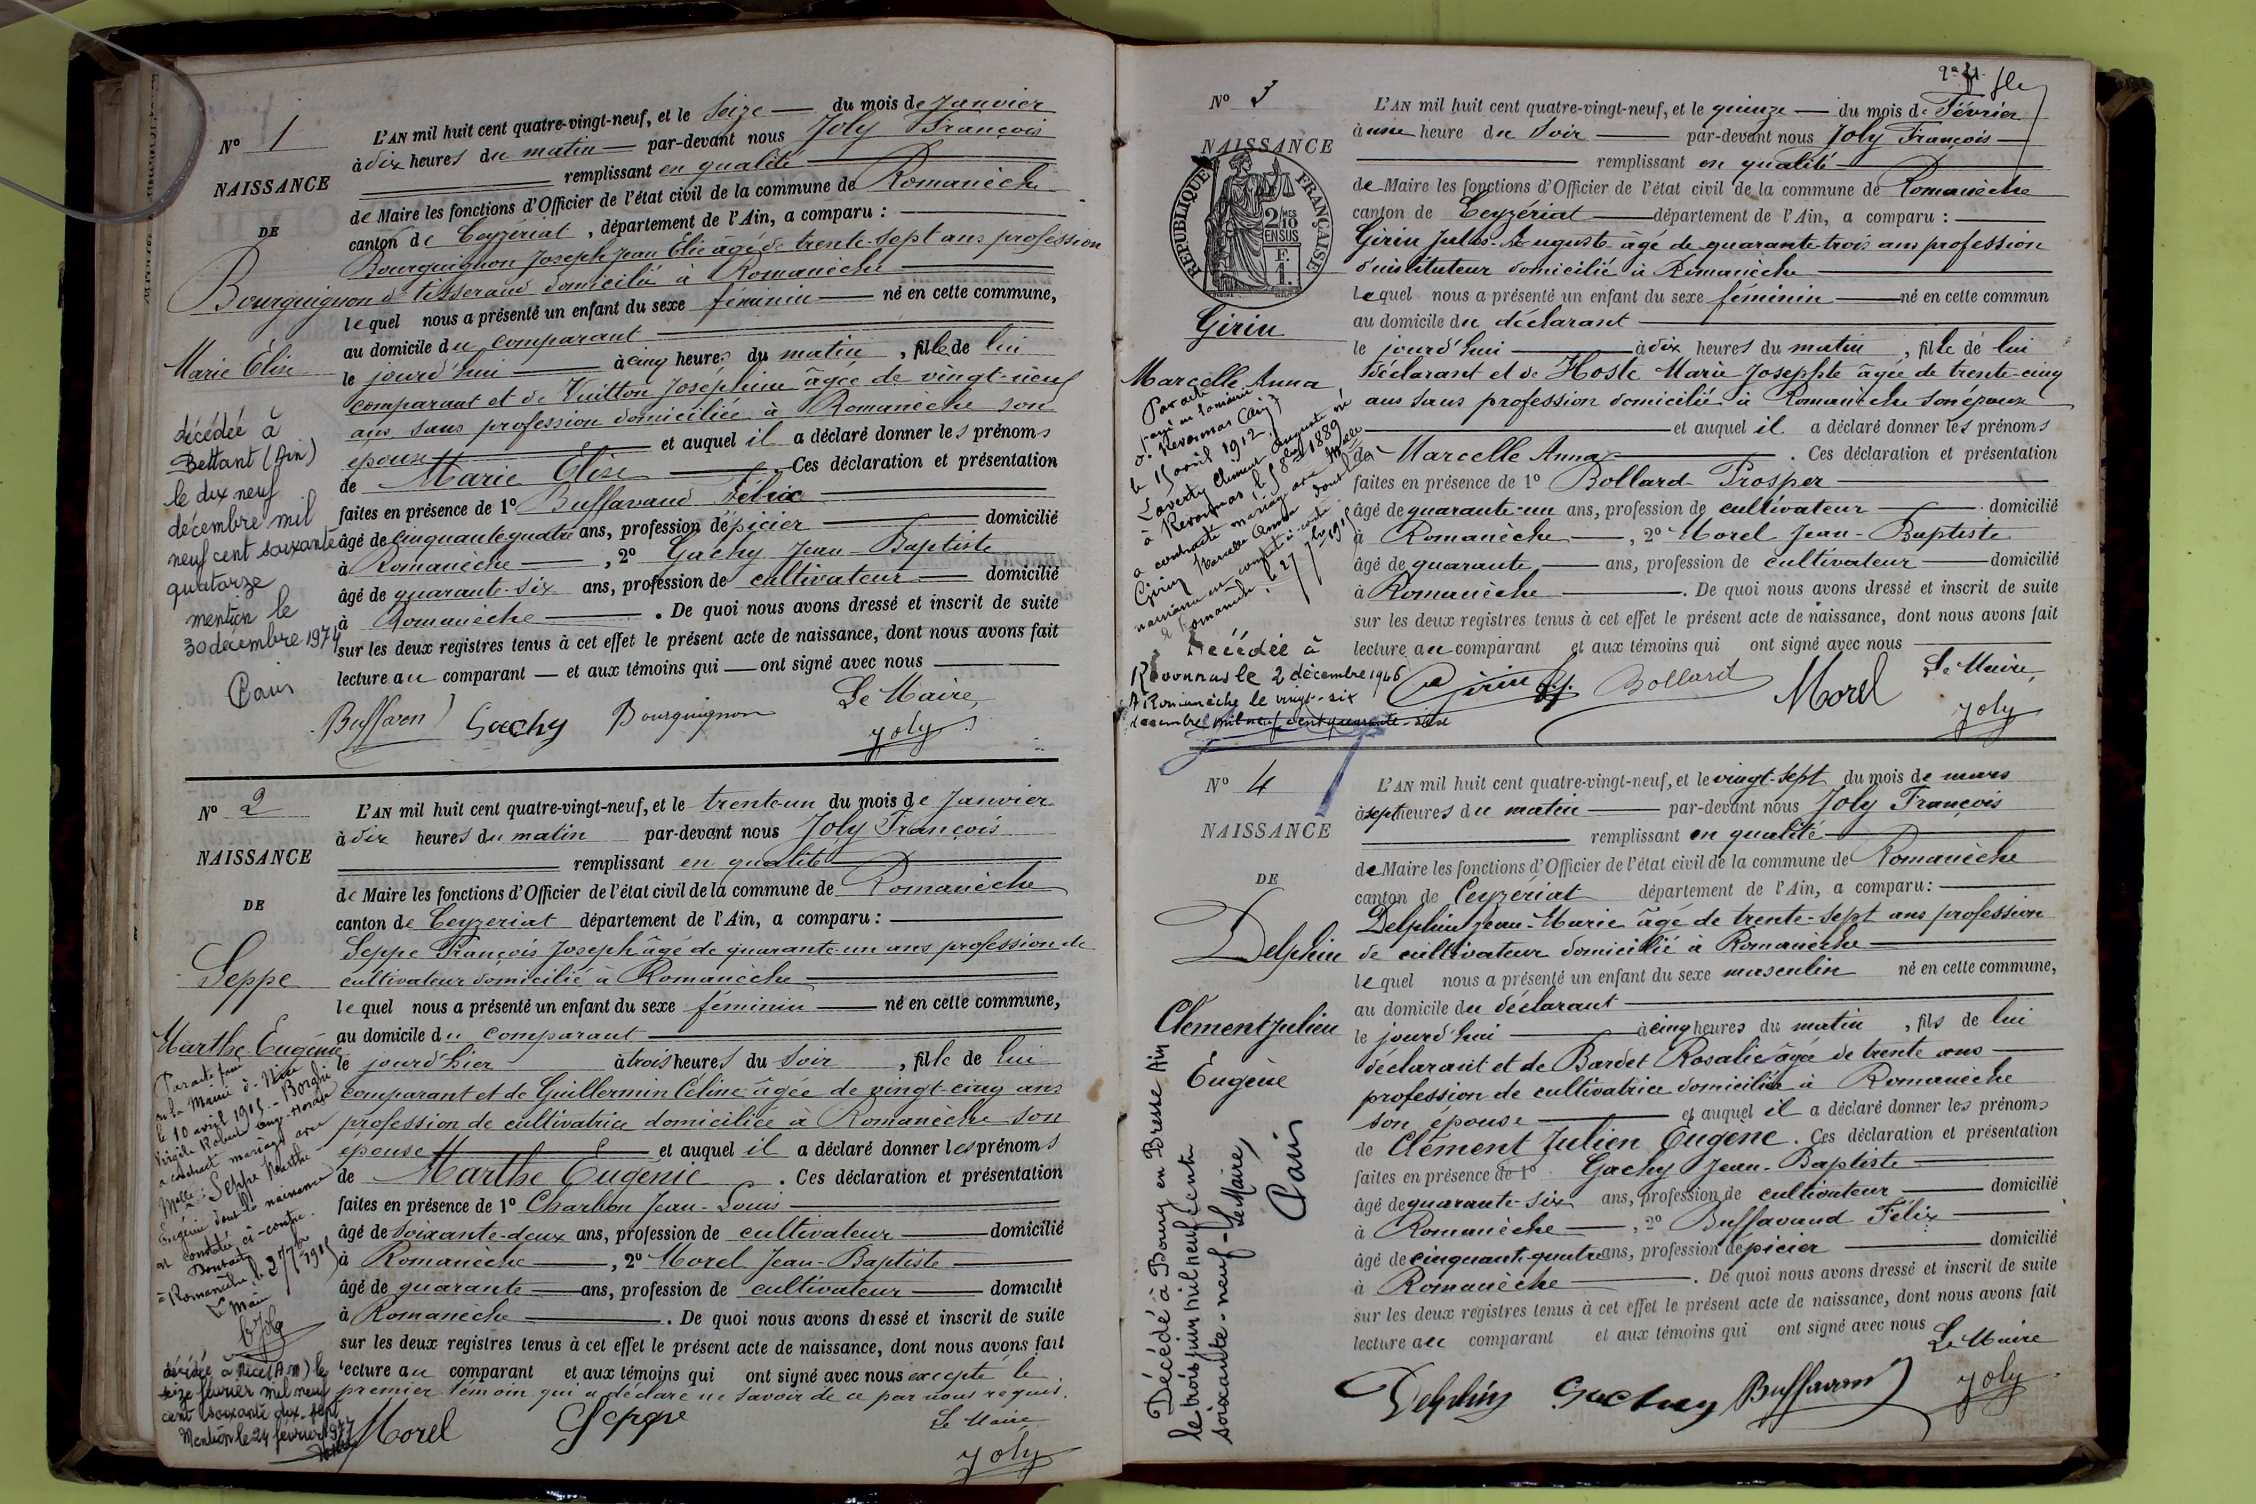 N° 1
NAISSANCE
DE
Bourguignon
Marie Élise
décédée à
Bettant (Ain)
le dix neuf
décembre mil
neuf cent soixante
quatorze
mention le
30 décembre 1974
L'AN mil huit cent quatre-vingt-neuf, et le seize du mois de Janvier
à dix heures du matin par-devant nous Joly François
remplissant en qualité
de Maire les fonctions d'Officier de l'état civil de la commune de Romanèche
canton de Ceyzériat, département de l'Ain, a comparu :
Bourguignon Joseph Jean Elie âgé de trente-sept ans profession
de tisserand domicilié à Romanèche
lequel nous a présenté un enfant du sexe féminin né en cette commune,
au domicile du comparant
le jourd'hui à cinq heures du matin, fille de lui
comparant et de Vuitton Joséphine âgée de vingt-neuf
ans sans profession domiciliée à Romanèche son
épouse et auquel il a déclaré donner les prénoms
de Marie Élise Ces déclaration et présentation
faites en présence de 1° Buffavand Félix
âgé de cinquante quatre ans, profession d'épicier domicilié
à Romanèche, 2° Gachy Jean-Baptiste
âgé de quarante-six ans, profession de cultivateur domicilié
à Romanèche. De quoi nous avons dressé et inscrit de suite
sur les deux registres tenus à cet effet le présent acte de naissance, dont nous avons fait
lecture au comparant et aux témoins qui ont signé avec nous
Le Maire,
Gachy Bourguignon
Joly
N° 2
NAISSANCE
DE
Seppe
Marthe Eugénie
Par acte
en la Mairie de Nice
le 10 avril 1915 - Borghi
Virgile Robert Ange
a contracté mariage avec
Melle Seppe Marthe
Eugénie dont la naissance
est constatée ci-contre.
à Romanèche, le 27 1915
Le Maire
décédée à Nice (A.M) le
seize février mil neuf
cent soixante dix-sept
Mention le 24 février 1977
L'AN mil huit cent quatre-vingt-neuf, et le trente-un du mois de Janvier
à dix heures du matin par-devant nous Joly François
remplissant en qualité
de Maire les fonctions d'Officier de l'état civil de la commune de Romanèche
canton de Ceyzeriat département de l'Ain, a comparu :
Seppe François Joseph âgé de quarante-un ans profession de
cultivateur domicilié à Romanèche
lequel nous a présenté un enfant du sexe féminin né en cette commune,
au domicile du comparant
le jourd'hier à trois heures du soir, fille de lui
comparant et de Guillermin Céline âgée de vingt-cinq ans
profession de cultivatrice domiciliée à Romanèche son
épouse et auquel il a déclaré donner les prénoms
de Marthe Eugénie. Ces déclaration et présentation
faites en présence de 1° Charbon Jean-Louis
âgé de soixante-deux ans, profession de cultivateur domicilié
à Romanèche, 2° Morel Jean-Baptiste
âgé de quarante ans, profession de cultivateur domicilié
à Romanèche. De quoi nous avons dressé et inscrit de suite
sur les deux registres tenus à cet effet le présent acte de naissance, dont nous avons fait
lecture au comparant et aux témoins qui ont signé avec nous excepté le
premier témoin qui a déclaré ne savoir de ce par nous requis.
Le Maire
Morel Seppe
Joly
N° 3
NAISSANCE
RÉPUBLIQUE FRANÇAISE
2 MES 10 EN SUS
F. 1.
Girin
Marcelle Anna
Par acte
à Revonnas (Ain)
le 15 avril 1912
Laverty Clément Auguste né
à Revonnas le 5 8bre 1889
a contracté mariage avec Melle
Girin Marcelle Anna dont la
naissance est constatée ci-contre
à Romanèche, le 27 1915
Décédée à
Revonnas le 2 décembre 1946
A Romanèche le vingt-six
décembre mil neuf cent quarante-six
L'AN mil huit cent quatre-vingt-neuf, et le quinze du mois de Février
à une heure du soir par-devant nous Joly François
remplissant en qualité
de Maire les fonctions d'Officier de l'état civil de la commune de Romanèche
canton de Ceyzériat département de l'Ain, a comparu :
Girin Jules-Auguste âgé de quarante-trois ans profession
d'instituteur domicilié à Romanèche
lequel nous a présenté un enfant du sexe féminin né en cette commun
au domicile du déclarant
le jourd'hui à dix heures du matin, fille de lui
déclarant et de Hoste Marie Josephte âgée de trente-cinq
ans sans profession domicilié à Romanèche son épouse
et auquel il a déclaré donner les prénoms
de Marcelle Anna. Ces déclaration et présentation
faites en présence de 1° Bollard Prosper
âgé de quarante-un ans, profession de cultivateur domicilié
à Romanèche, 2° Morel Jean-Baptiste
âgé de quarante ans, profession de cultivateur domicilié
à Romanèche. De quoi nous avons dressé et inscrit de suite
sur les deux registres tenus à cet effet le présent acte de naissance, dont nous avons fait
lecture au comparant et aux témoins qui ont signé avec nous
Le Maire,
Girin Bollard Morel
Joly
N° 4
NAISSANCE
DE
Delphin
Clément Julien
Eugène
Décédé à Bourg en Bresse Ain
le trois juin mil neuf cent
soixante-neuf - Le Maire,
L'AN mil huit cent quatre-vingt-neuf, et le vingt-sept du mois de mars
à sept heures du matin par-devant nous Joly François
remplissant en qualité
de Maire les fonctions d'Officier de l'état civil de la commune de Romanèche
canton de Ceyzériat département de l'Ain, a comparu :
Delphin Jean-Marie âgé de trente-sept ans profession
de cultivateur domicilié à Romanèche
lequel nous a présenté un enfant du sexe masculin né en cette commune,
au domicile du déclarant
le jourd'hui à cinq heures du matin, fils de lui
déclarant et de Bardet Rosalie âgée de trente ans
profession de cultivatrice domiciliée à Romanèche
son épouse et auquel il a déclaré donner les prénoms
de Clément Julien Eugène. Ces déclaration et présentation
faites en présence de 1° Gachy Jean-Baptiste
âgé de quarante-six ans, profession de cultivateur domicilié
à Romanèche, 2° Buffavand Félix
âgé de cinquante-quatre ans, profession d'épicier domicilié
à Romanèche. De quoi nous avons dressé et inscrit de suite
sur les deux registres tenus à cet effet le présent acte de naissance, dont nous avons fait
lecture au comparant et aux témoins qui ont signé avec nous
Le Maire
Delphin Gachy Buffavand Joly